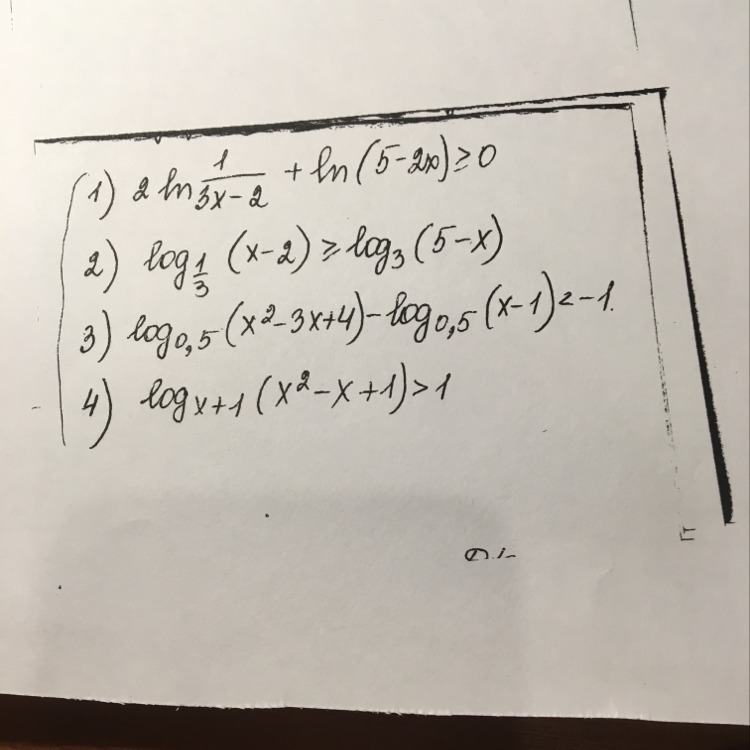 1) 2 ln 1/(3x-2) + ln(5-2x) ≥ 0
2) log_{1/3} (x-2) ≥ log_3 (5-x)
3) log_{0,5} (x²-3x+4) - log_{0,5} (x-1) < -1.
4) log_{x+1} (x²-x+1) > 1